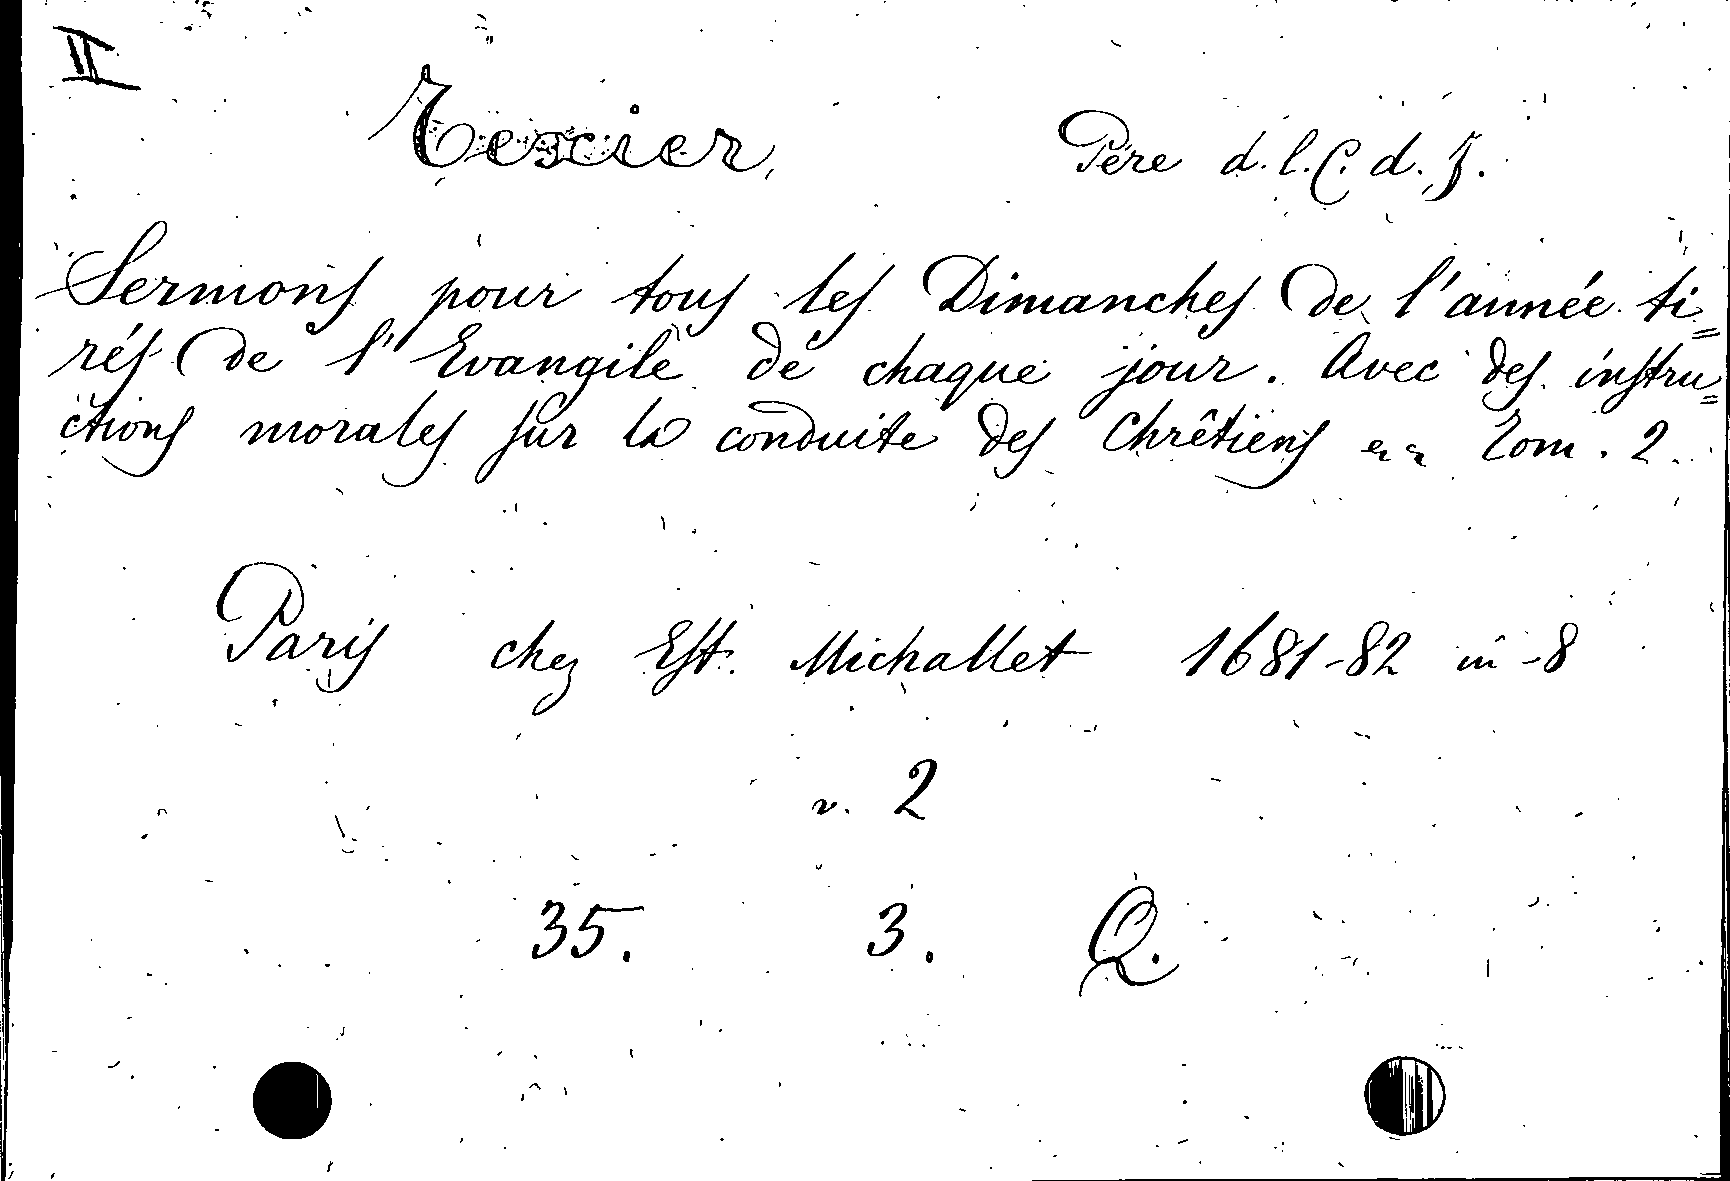 II
Texier, Père d. l. C. d. J.
Sermons pour tous les Dimanches de l'année ti=
rés de l'Evangile de chaque jour. Avec des instru=
ctions morales sur la conduite des Chrêtiens Tom. 2.
Paris chez Est. Michallet 1681-82 in-8
v. 2
35. 3. Q.